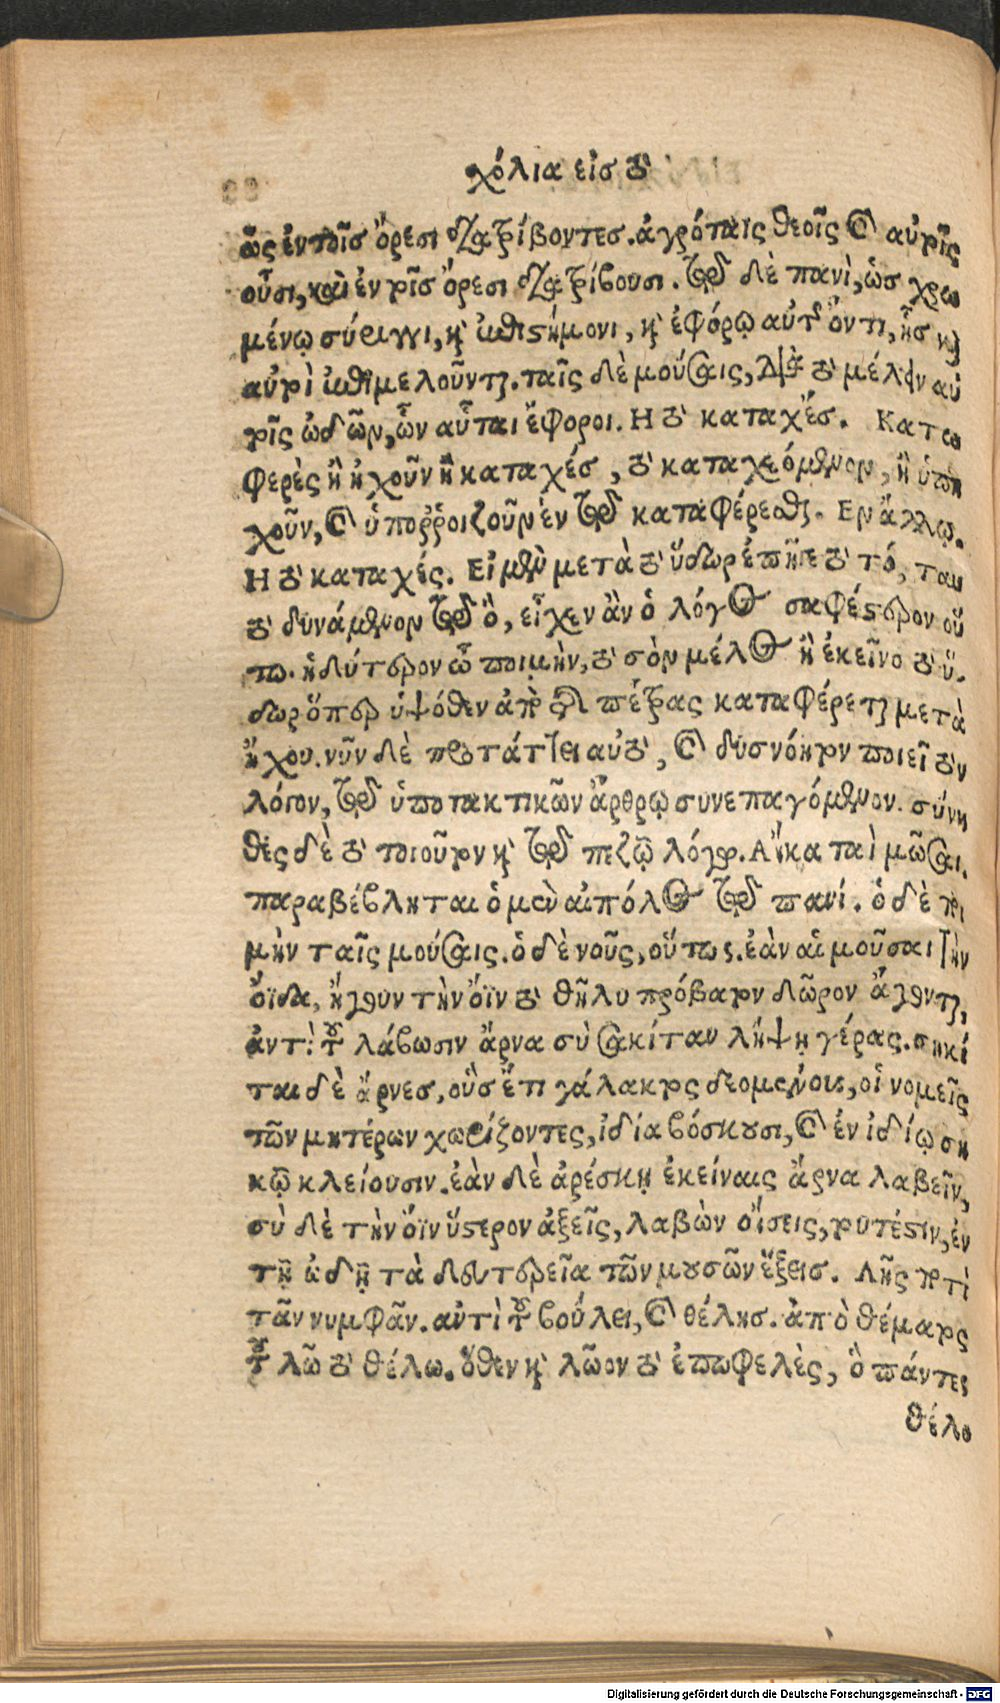 χόλια εἰς τὸ
ὡς ἐν τοῖς ὄρεσι διατρίβοντες. ἀγρόταις θεοῖς καὶ αὐτοῖς
οὖσι, καὶ ἐν τοῖς ὄρεσι διατρίβουσι. τῷ δὲ πανὶ, ὡς χρω
μένῳ σύριγγι, καὶ ἐπιστήμονι, καὶ ἐφόρῳ αὐτῆς ὄντι, ἧς καὶ
αὐτοὶ ἐπιμελοῦνται. ταῖς δὲ μούσαις, διὰ τὸ μέλειν αὐ
τοῖς ᾠδῶν, ὧν αὗται ἔφοροι. Η τὸ καταχὲς. Κατω
φερὲς ἢ ἠχοῦν ἢ καταχές, τὸ καταχεόμενον, ἢ ὑπη
χοῦν, καὶ ὑποῤῥοιζοῦν ἐν τῷ καταφέρεσθαι. Εν ἄλλῳ.
Η τὸ καταχές. Εἰ μὲν μετὰ τὸ ὕδωρ ἐπῆγε τὸ τό, ταυ
τὸ δυνάμενον τῷ ὃ, εἶχεν ἂν ὁ λόγος σαφέστερον οὕ
τω. ἡδύτερον ὦ ποιμὴν, τὸ σὸν μέλος ἢ ἐκεῖνο τὸ ὕ-
δωρ ὅπερ ὑψόθεν ἀπὸ τῆς πέτρας καταφέρεται μετὰ
ἤχου. νῦν δὲ προτάττει αὐτὸ, καὶ δυσνόητον ποιεῖ τὸν
λόγον, τῷ ὑποτακτικῶν ἄρθρῳ συνεπαγόμενον. σύνη
θες δὲ τὸ τοιοῦτον καὶ τῷ πεζῷ λόγῳ. Αἴκα ταὶ μῶσαι.
παραβέβληται ὁ μὲν αἰπόλος τῷ πανί. ὁ δὲ ποι
μὴν ταῖς μούσαις. ὁ δὲ νοῦς, οὕτως. ἐὰν αἱ μοῦσαι τὴν
ὄϊδα, ἤγουν τὴν ὄϊν τὸ θῆλυ πρόβατον δῶρον ἄγωνται,
ἀντὶ τοῦ λάβωσιν ἄρνα σὺ σακίταν λήψῃ γέρας. σηκί
ται δὲ ἄρνες, οὓς ἔτι γάλακτος δεομένους, οἱ νομεῖς
τῶν μητέρων χωρίζοντες, ἰδία βόσκουσι, καὶ ἐν ἰδίῳ ση
κῷ κλείουσιν. ἐὰν δὲ ἀρέσκῃ ἐκείναις ἄρνα λαβεῖν,
σὺ δὲ τὴν ὄϊν ὕστερον ἀξεῖς, λαβὼν οἴσεις, τουτέστιν, ἐν
τῇ ᾠδῇ τὰ δευτερεῖα τῶν μουσῶν ἕξεις. Λῇς ποτὶ
τᾶν νυμφᾶν. αὐτὶ τοῦ βούλει, καὶ θέλης. ἀπὸ θέματος
τοῦ λῶ τὸ θέλω. ὅθεν καὶ λῶον τὸ ἐπωφελὲς, ὃ πάντες
θέλο
Digitalisierung gefördert durch die Deutsche Forschungsgemeinschaft - DFG